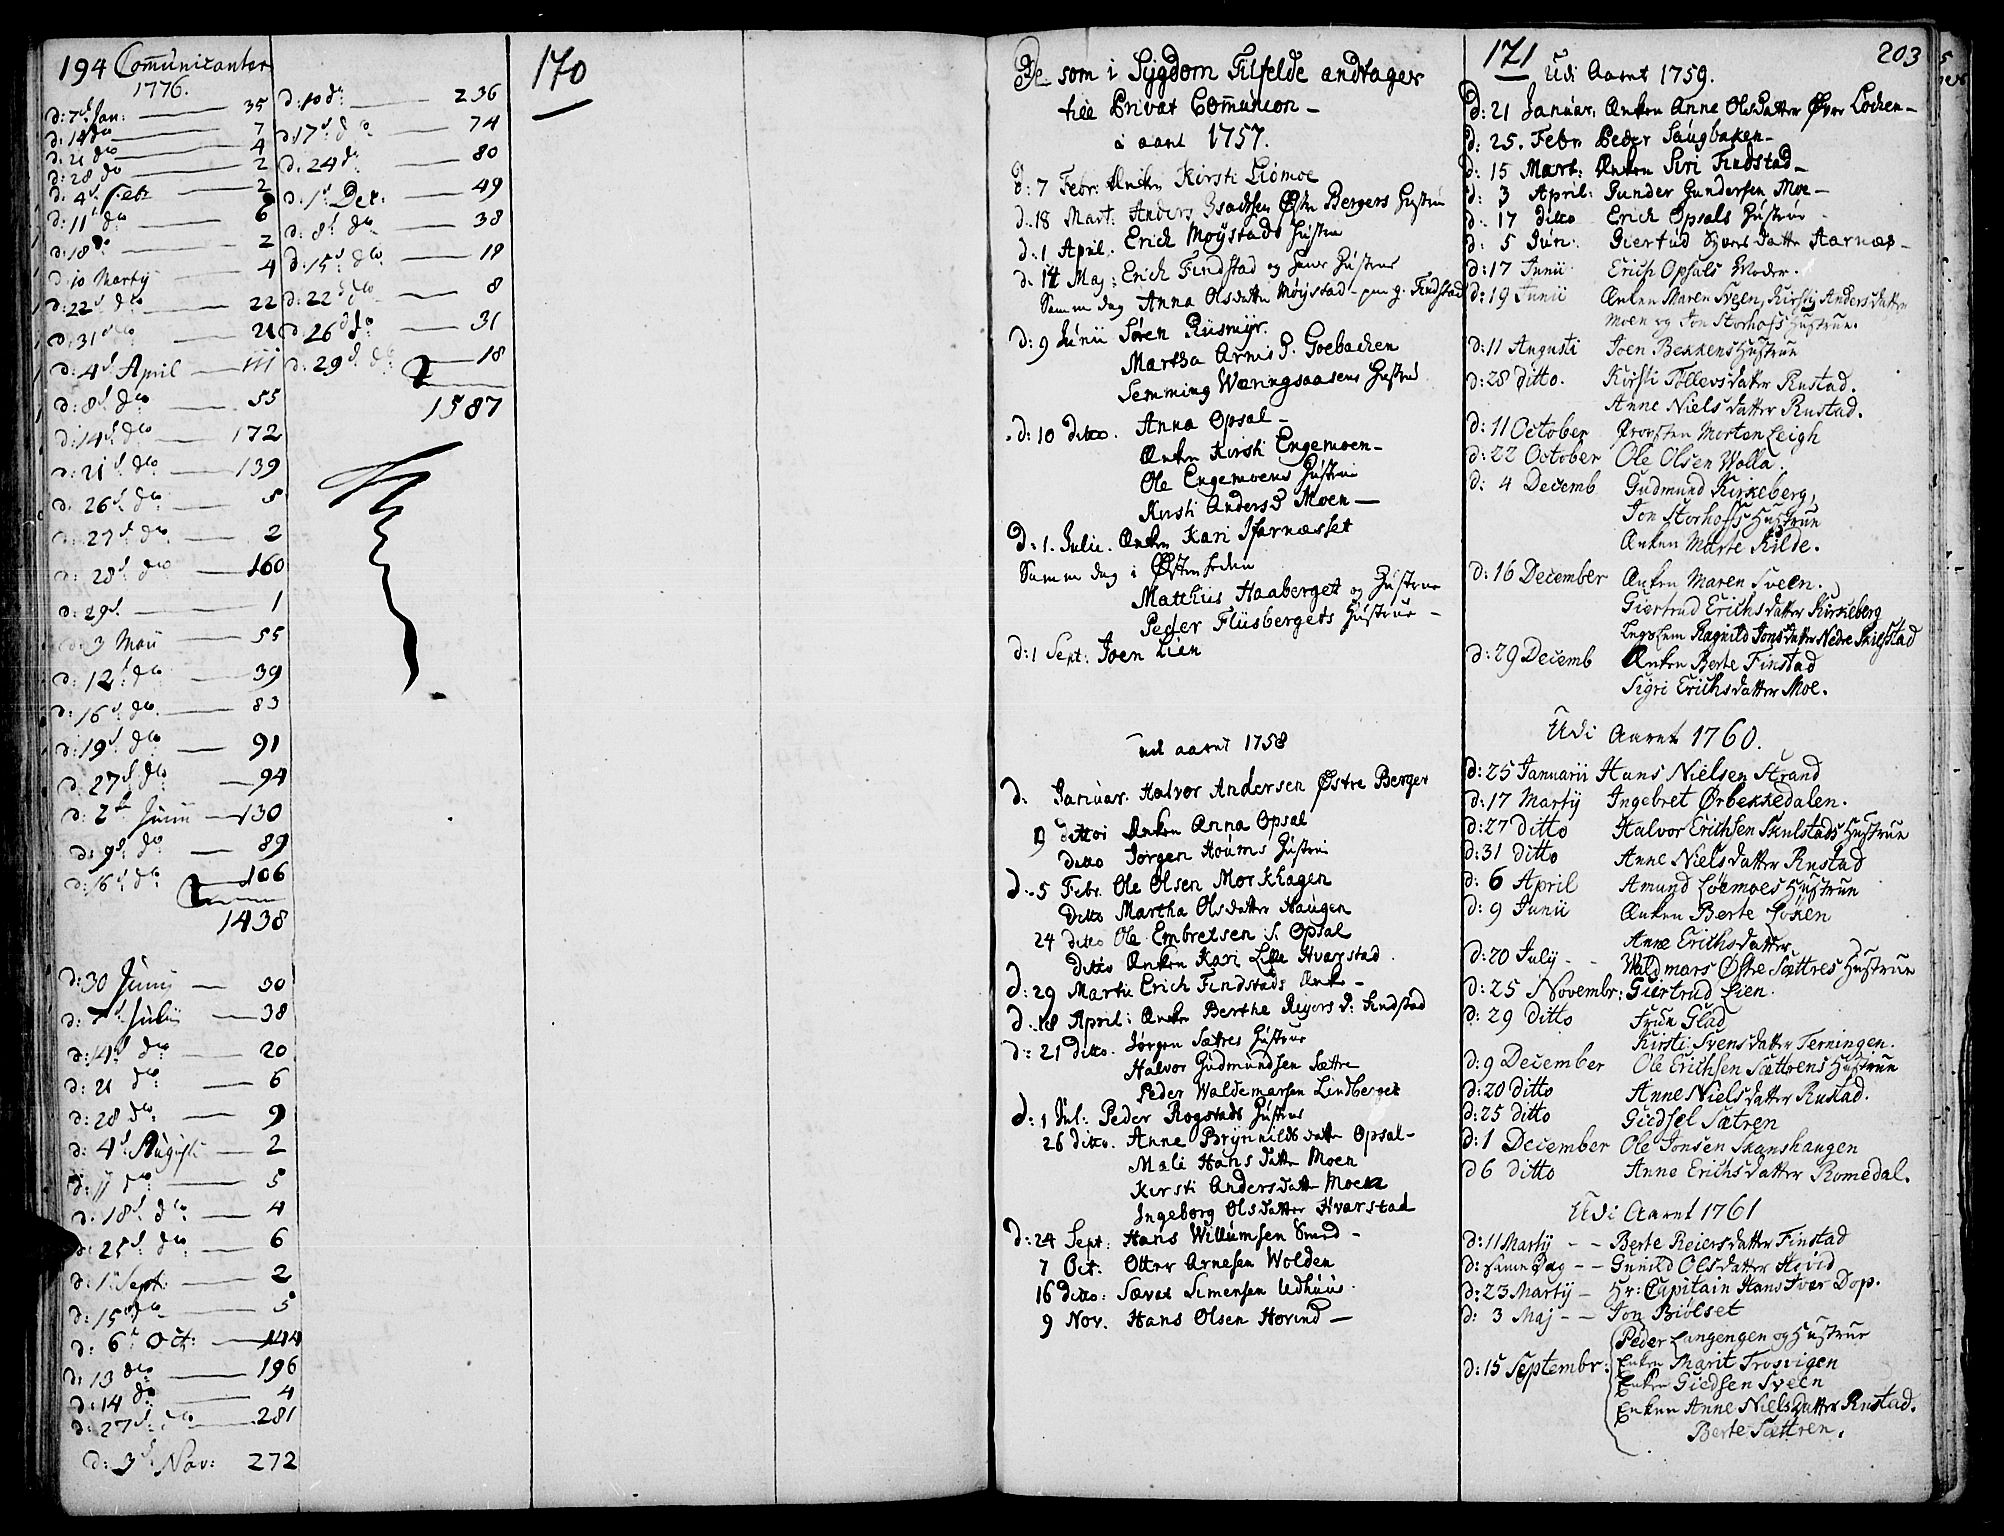 194 Comũnicanter
1776.
d: 7d Jan: 35
d: 14 do 7
d: 21 do 4
d: 28 do 2
d: 4d Febr 2
d: 11d do 6
d: 18 do 2
d 10 Martij 4
d: 22d do 22
d: 31d do 21
d: 4d April 111
d: 8d do 55
d: 14d do 172
d: 21d do 139
d: 26d do 5
d: 27d do 2
d: 28d do 160
d: 29d 1
d: 3 Maii 55
d: 12d do 39
d: 16d do 83
d: 19d do 91
d: 27d do 94
d: 2d Junii 130
d: 9d do 89
d: 16d do 106
1438
d: 30 Junij 30
d: 7d Julii 38
d: 14d do 20
d: 21 do 6
d: 28 do 9
d: 4d Augusti 2
d: 11 do 5
d: 18d do 4
d: 25d do 6
d: 1d Sept: 2
d: 15d do 5
d: 6d Oct: 144
d: 13 do 196
d: 14 do 4
d: 27d do 281
d: 3d Nov: 272
d: 10 do 236
d: 17d do 74
d. 24 do 80
d: 1d Dec: 49
d: 8d do 38
d: 15d do 19
d: 22d do 8
d: 26d do 31
d: 29d do 18
1587
170
De som i Sygdom Tilfelde andtages
till Privat Com̃union
i aaret 1757.
d: 7 Febr: Enken Kirsti Liomoe
d. 18 Mart: Anders Isachsen Østre Bergers Hustru
d. 1 April. Erich Moystads Hustru
d. 14 Maj: Erich Findstad og hans Hustrue
Samme dag Anna Olsdatter Møystad Findstad
d: 9 Junii Søren Rusmyr.
Martha Arnis D. Goebachen
Semming Wæringsaasens Hustru
d: 10 ditto. Anna Opsal
Enken Kirsti Engemoen
Ole Engemoens Hustru
Kirsti Anders D Moen
d: 1. Julii. Enken Kari Ifarnæsset
Samme dag i Østenheden
Matthis Haaberget og Hustrue
Peder Flisbergets Hustrue
d: 1 Sept: Joen Lien
ud aaret 1758
d. Januar. Halvor Andersen Østre Berger
9 ditto Enken Anna Opsal
ditto Jørgen Houms Hustru
d. 5 Febr. Ole Olsen Morkhagen
ditto Martha Olsdatter Haugen
24 ditto Ole Embretsen S. Opsal
ditto Enken Kari Lille Hvarstad
d: 29 Martii Erich Findstads Enke
d. 18 April: Enken Berthe Reyers D: Findstad
d: 21 ditto. Jørgen Sætres Hustrue
Halvor Gudmundsen Sætre
Peder Waldemarsen Lindberget
d: 1 Jul: Peder Rogstads Hustrue
26 ditto. Anne Brynnilds datter Opsal
Mali Hans datter Moen
Kirsti Anders datter Moen
Ingeborg Olsdatter Hvarstad
d: 24 Sept: Hans Willumsen Smed
7 Oct: Otter Arnesen Wolden
16 ditto: Sævat Simensen Udhuus
9 Nov. Hans Olsen Hovind
171
203
Udi Aaret 1759.
d: 21 Januar: Enken Anne Olsdatter Øvre Løchen
d: 25. Febr. Peder Saugbaken
d: 15 Mart: Enken Siri Findstad
d: 3 April: Gunder Gundersen Moe
d. 17 ditto Erich Opsals Hustrue
d: 5 Jun: Giertud Syvers datter Aarnæs
d: 17 Junii Erich Opsals Moder.
d: 19 Junii Enken Maren Sveen, Kirstij Andersdatter
Moen og Jon Storhofs Hustrue.
d: 11 Augusti Joen Bekkens Hustrue
d: 28 ditto. Kirsti Tollevsdatter Rustad.
Anne Niels datter Rustad.
d: 11 October Provsten Morten Leigh
d: 22 October Ole Olsen Wolla.
d: 4 Decemb Gudmund Kirkeberg,
Jon Storhofs Hustrue
Enken Marte Kilde.
d: 16 December Enken Maren Sveen.
Giertrud Erichsdatter Kirkeberg
Ragnild Jonsdatter Nedre Skulstad
d: 29 Decemb Enken Berte Finstad
Sigri Erichsdatter Moe.
Udi Aaret 1760.
d: 25 Januarii Hans Nielsen Strand
d: 17 Martij Ingebret Ørbekkedalen.
d: 27 ditto Halvor Erichsen Skulstads Hustrue
d: 31 ditto Anne Nielsdatter Rustad
d: 6 April Amund Løemoes Hustrue
d: 9 Junii Enken Berte Løken
Anne Erichsdatter
d: 20 July - - Waldmars Østre Sættres Hustrue
d: 25 Novembr: Giertrud Lien.
d: 29 ditto Frue Glad
Kirsti Svensdatter Terningen.
d: 9 December Ole Erichsen Sættrens Hustrue
d: 20 ditto Anne Nielsdatter Rustad.
d: 25 ditto Giedsel Sætren
d: 1 December Ole Jonsen Skanshaugen
d 6 ditto Anne Erichsdatter Romedal.
Udi Aaret 1761
d: 11 Martij - - Berte Reiersdatter Finstad
d: samme Dag - - Gunild Olsdatter Hovid
d: 23 Martij - Hr: Capitain Hans Iver Dop.
d: 3 Maj - - Jon Biølset
Peder Langengen og Hustrue
d: 15 Septembr: Enken Marit Trosvigen
Enken Giedsen Sveen
Enken Anne Nielsdatter Rustad.
Berte Sættren.